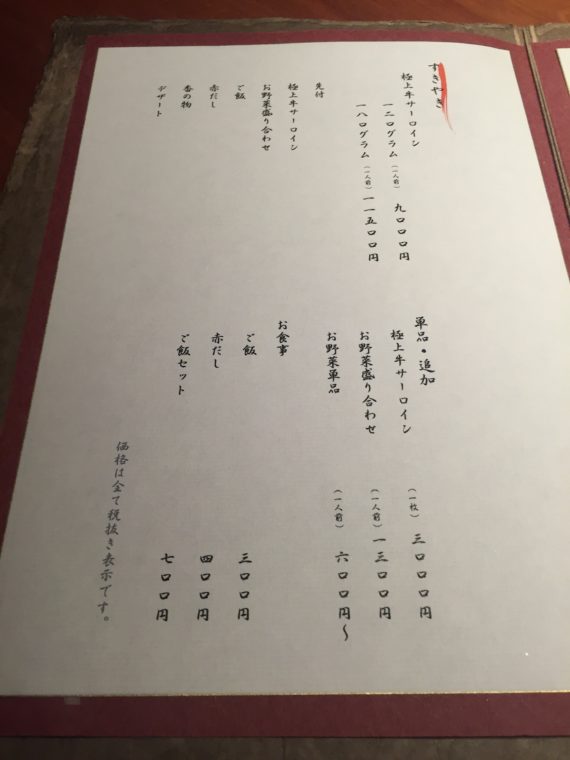 すきやき
極上牛サーロイン
一二〇グラム（一人前）九〇〇〇円
一八〇グラム（一人前）一一五〇〇円
先付
極上牛サーロイン
お野菜盛り合わせ
ご飯
赤だし
香の物
デザート
単品・追加
極上牛サーロイン（一枚）三〇〇〇円
お野菜盛り合わせ（一人前）一三〇〇円
お野菜単品（一人前）六〇〇円〜
お食事
ご飯 三〇〇円
赤だし 四〇〇円
ご飯セット 七〇〇円
価格は全て税抜き表示です。